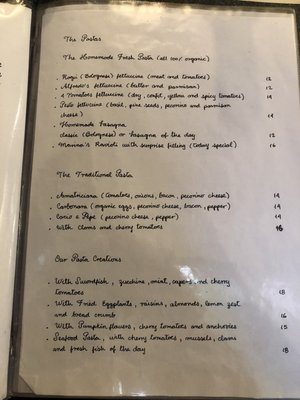 The Pastas
The Homemade Fresh Pasta (all 100% organic)
. Ragù (Bolognese) fettuccine (meat and tomatoes) 12
. Alfredo's fettuccine (butter and parmisan) 12
. 4 Tomatoes fettuccine (dry, confit, yellow and spicy tomatoes) 14
. Pesto fettuccine (basil, pine seeds, pecorino and parmisan
cheese) 14
. Homemade Lasagna
classic (Bolognese) or Lasagna of the day 12
. Marina's Ravioli with surprise filling (today special) 16
The Traditional Pasta
. Amatriciana (tomatoes, onions, bacon, pecorino cheese) 14
. Carbonara (organic eggs, pecorino cheese, bacon, pepper) 14
. Cacio e Pepe (pecorino cheese, pepper) 14
. With Clams and cherry tomatoes 16
Our Pasta Creations
. With Swordfish, zucchina, mint, capers and cherry
tomatoes 18
. With Fried Eggplants, raisins, almonds, lemon zest
and bread crumb 16
. With Pumpkin flowers, cherry tomatoes and anchovies 15
. Seafood Pasta, with cherry tomatoes, mussels, clams
and fresh fish of the day 18